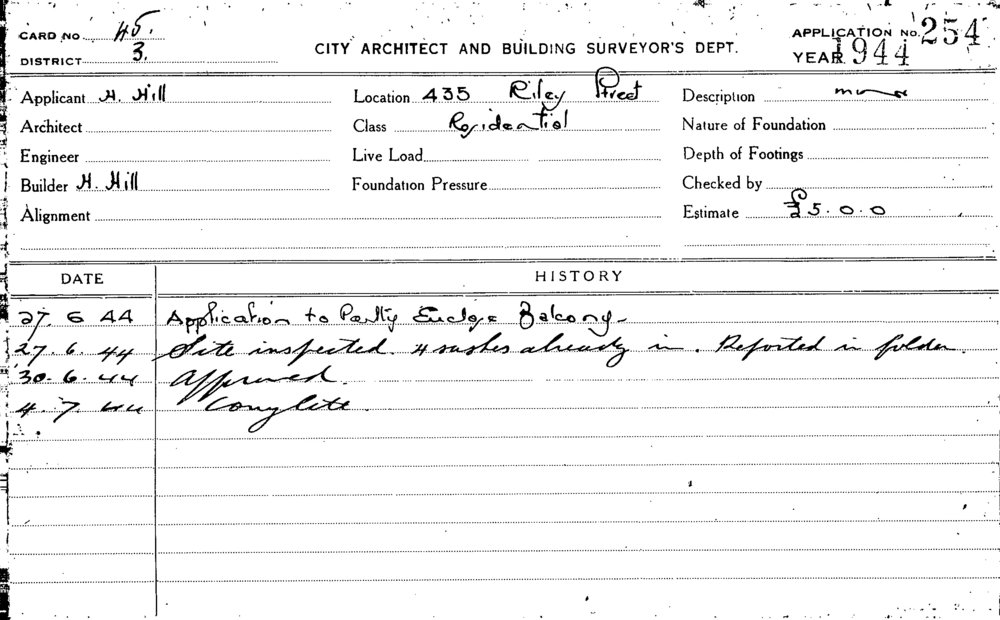 CARD NO. 45. CITY ARCHITECT AND BUILDING SURVEYOR'S DEPT. APPLICATION NO. 254
DISTRICT 3. YEAR 1944
Applicant H. Hill Location 435 Riley Street Description
Architect Class Residential Nature of Foundation
Engineer Live Load Depth of Footings
Builder H. Hill Foundation Pressure Checked by
Alignment Estimate £5.0.0
DATE HISTORY
27. 6 44 Application to Partly Enclose Balcony
27. 6. 44 Site inspected. 4 sashes already in. Reported in folder.
30. 6. 44 Approved.
4. 7 44 Complete.